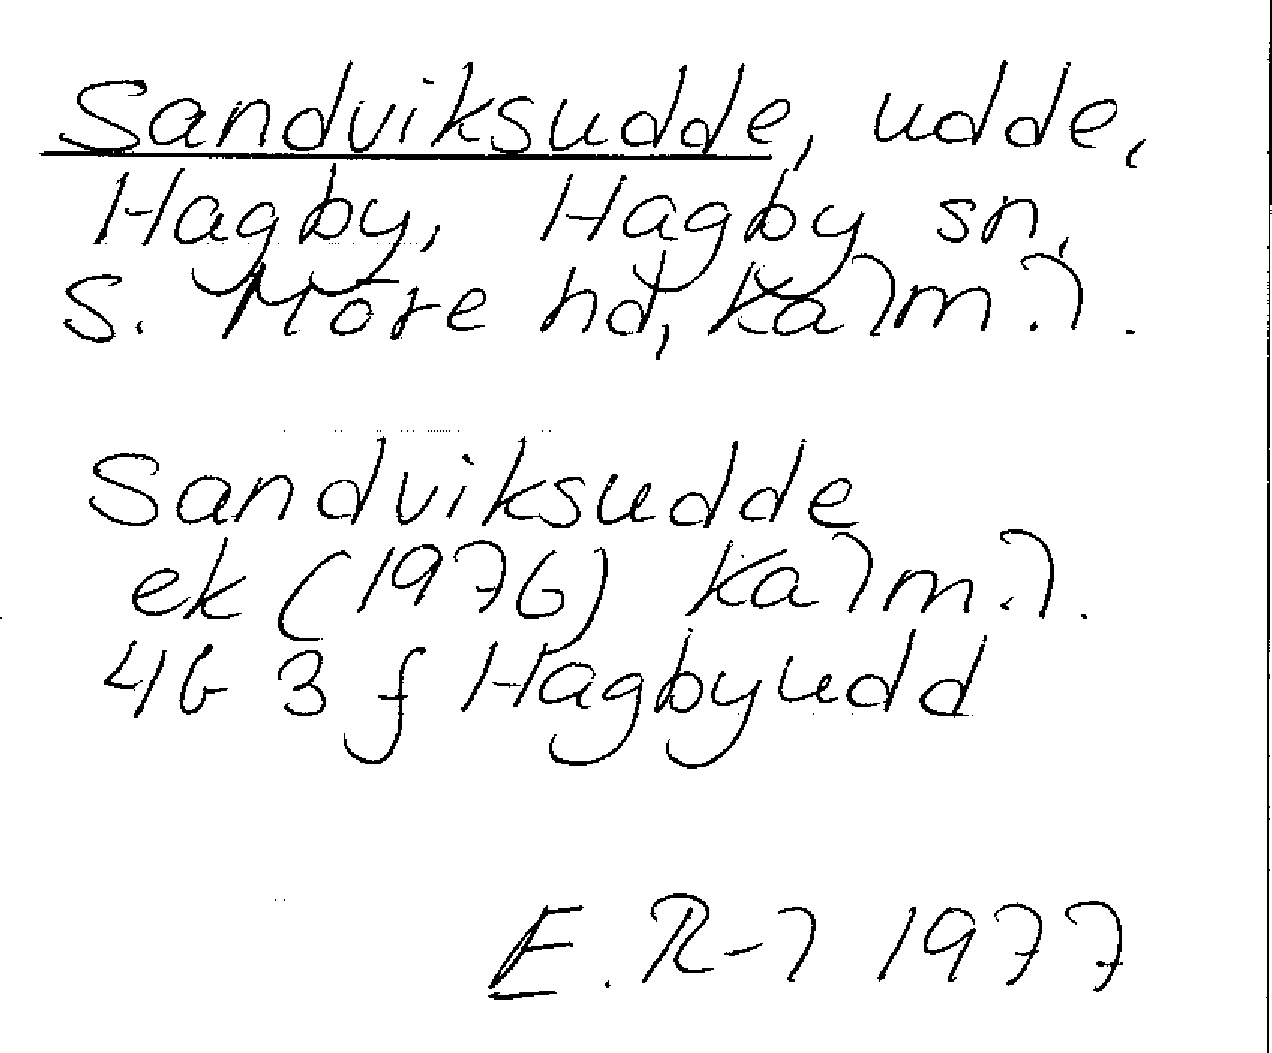 Sandviksudde, udde,
Hagby, Hagby sn,
S. Möre hd, Kalm. l.
Sandviksudde
ek (1976) Kalm. l.
4G 3 f Hagbyudd
E. R-l 1977